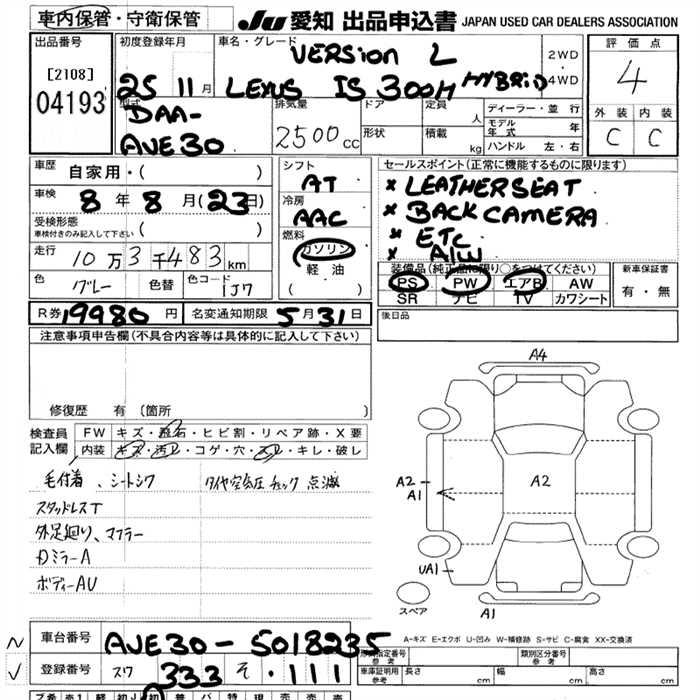 車内保管・守衛保管
JU 愛知 出品申込書 JAPAN USED CAR DEALERS ASSOCIATION
出品番号
[2108]
04193
初度登録年月
25 11月
車名・グレード
VERSION L
LEXUS IS 300H HYBRID
2WD
・
4WD
評価点
4
外装 内装
C C
型式
DAA-
AVE30
排気量
2500cc
ドア
形状
定員
人
積載
kg
ディーラー・並行
モデル年式 年
ハンドル 左・右
車歴
自家用・( )
車検
8年8月(23日)
受検形態
車検付きのみ記入して下さい
( )
走行
10万3千483km
色
グレー
色替
色コード
1J7
シフト
AT
冷房
AAC
燃料
ガソリン
軽油
( )
セールスポイント(正常に機能するものに限ります)
× LEATHER SEAT
× BACK CAMERA
× ETC
× A/W
装備品(純正品に限り○をつけてください)
PS PW エアB AW
SR ナビ TV カワシート
新車保証書
有・無
R券 19980円
名変通知期限 5月31日
後日品
注意事項申告欄(不具合内容等は具体的に記入して下さい)
修復歴 有 〔箇所 〕
検査員
記入欄
FW キズ・飛石・ヒビ割・リペア跡・X要
内装 キズ・汚レ・コゲ・穴・スレ・キレ・破レ
毛付着、シートシワ
タイヤ空気圧チェック点滅
スタッドレスT
外足廻り、マフラー
DミラーA
ボディーAU
A4
A2
A1
A2
UA1
A1
スペア
A-キズ E-エクボ U-凹み W-補修跡 S-サビ C-腐食 XX-交換済
車台番号
AVE30-5018235
登録番号
スワ 333 そ ・111
型式指定番号
参考
類別区分番号
参考
車庫証明用
参考
長さ cm 幅 cm 高さ cm